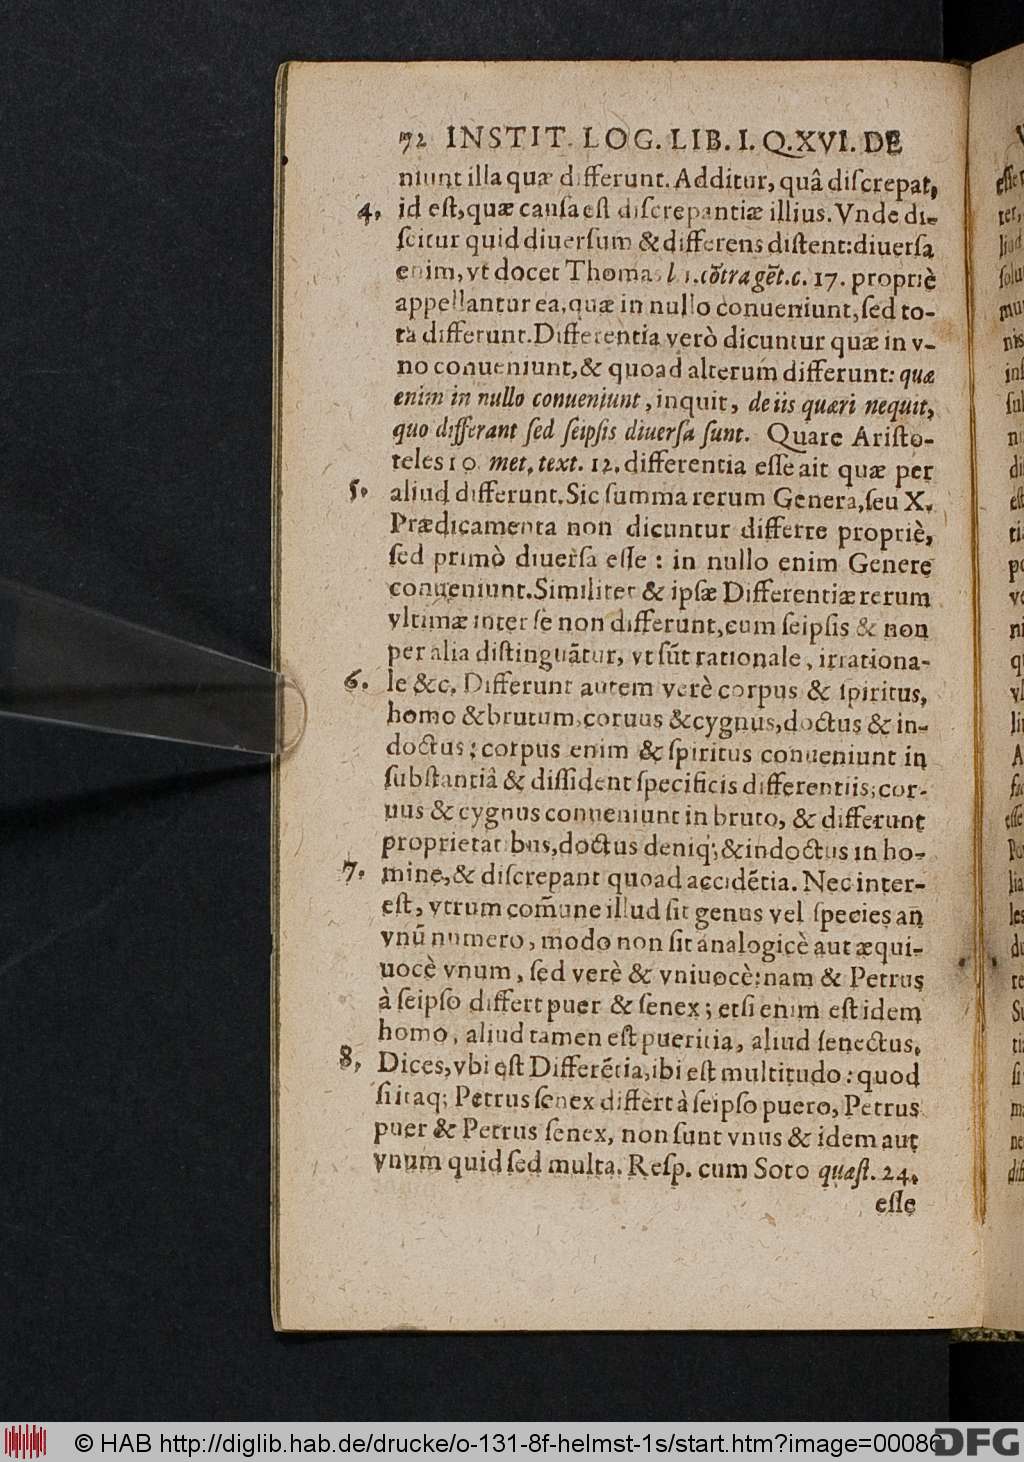 72 INSTIT. LOG. LIB. I. Q. XVI. DE
niunt illa quæ differunt. Additur, quâ diſcrepat,
4. id eſt, quæ cauſa eſt diſcrepantiæ illius. Vnde di-
ſcitur quid diuerſum & differens diſtent: diuerſa
enim, vt docet Thomas l. 1. cõtra gẽt. c. 17. propriè
appellantur ea, quæ in nullo conueniunt, ſed to-
ta differunt. Differentia verò dicuntur quæ in v-
no conueniunt, & quoad alterum differunt: quæ
enim in nullo conueniunt, inquit, de iis quæri nequit,
quo differant ſed ſeipſis diuerſa ſunt. Quare Ariſto-
teles 10 met, text. 12. differentia eſſe ait quæ per
5. aliud differunt. Sic ſumma rerum Genera, ſeu X.
Prædicamenta non dicuntur differre propriè,
ſed primò diuerſa eſſe: in nullo enim Genere
conueniunt. Similiter & ipſæ Differentiæ rerum
vltimæ inter ſe non differunt, cum ſeipſis & non
per alia diſtinguãtur, vt ſũt rationale, irrationa-
6. le &c. Differunt autem verè corpus & ſpiritus,
homo & brutum, coruus & cygnus, doctus & in-
doctus; corpus enim & ſpiritus conueniunt in
ſubſtantiâ & diſſident ſpecificis differentiis; cor-
uus & cygnus conueniunt in bruto, & differunt
proprietatibus, doctus deniq;, & indoctus in ho-
7. mine, & diſcrepant quoad accidẽtia. Nec inter-
eſt, vtrum com̃une illud ſit genus vel ſpecies an
vnũ numero, modo non ſit analogicè aut æqui-
uocè vnum, ſed verè & vniuocè: nam & Petrus
à ſeipſo differt puer & ſenex; etſi enim eſt idem
homo, aliud tamen eſt pueritia, aliud ſenectus.
8. Dices, vbi eſt Differẽtia, ibi eſt multitudo: quod
ſi itaq; Petrus ſenex differt à ſeipſo puero, Petrus
puer & Petrus ſenex, non ſunt vnus & idem aut
vnum quid ſed multa. Reſp. cum Soto quæſt. 24.
eſſe
© HAB http://diglib.hab.de/drucke/o-131-8f-helmst-1s/start.htm?image=00086
DFG